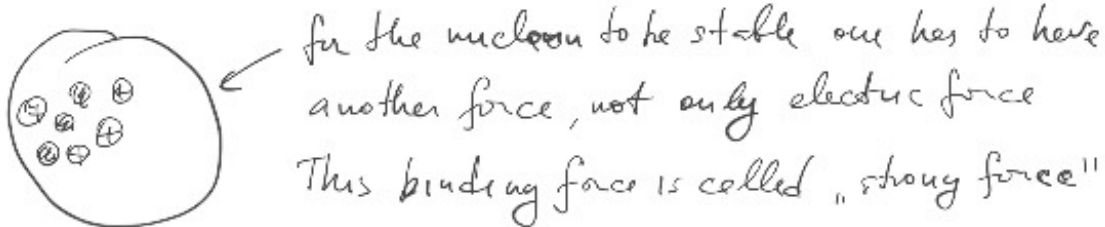 for the nucleon to be stable one has to have
another force, not only electric force
This binding force is called „strong force"